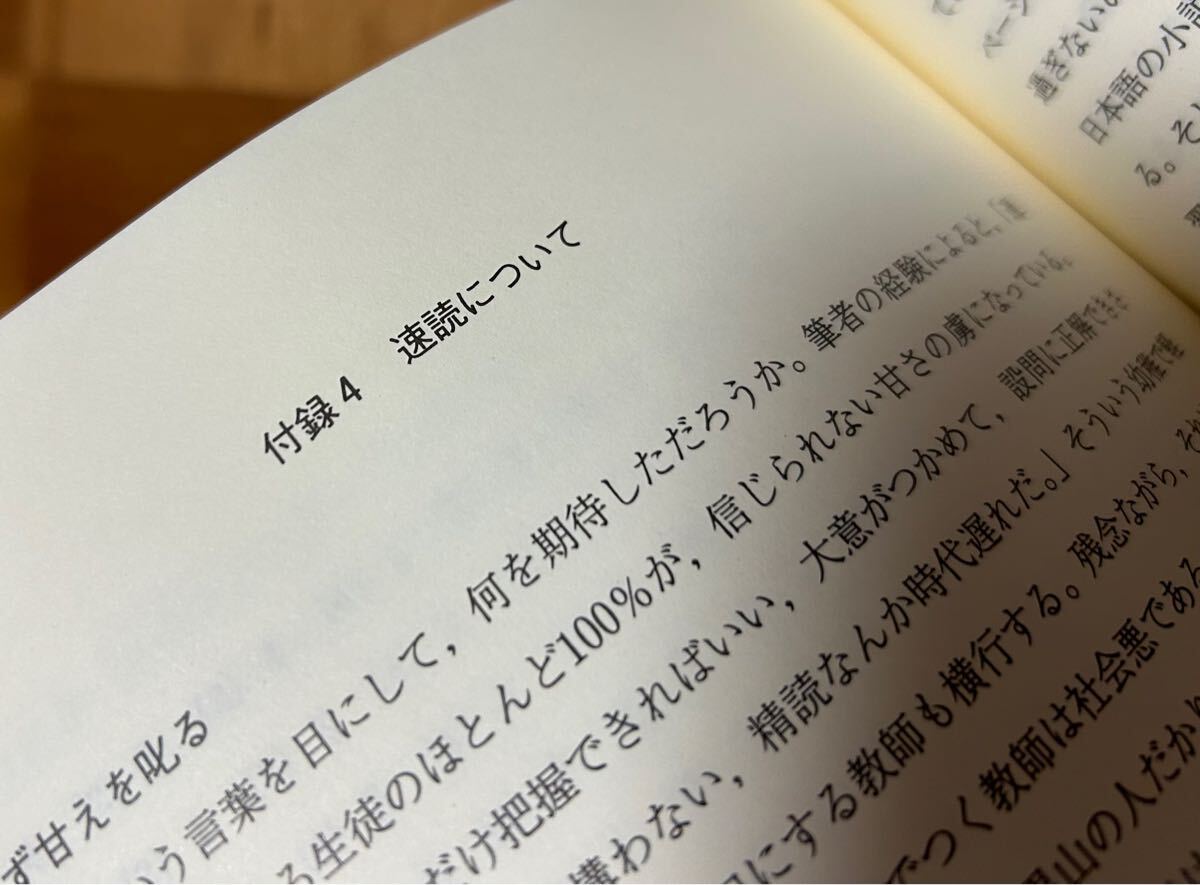 付録4 速読について
ず甘えを叱る
いう言葉を目にして，何を期待しただろうか。筆者の経験によると，「速
る生徒のほとんど100%が，信じられない甘さの虜になっている。
だけ把握できればいい，大意がつかめて，設問に正解できさ
構わない，精読なんか時代遅れだ。」そういう幼稚で
にする教師も横行する。残念ながら，それ
でつく教師は社会悪である
山の人だか
てい
ページ
過ぎない
日本語の小説
る。そ